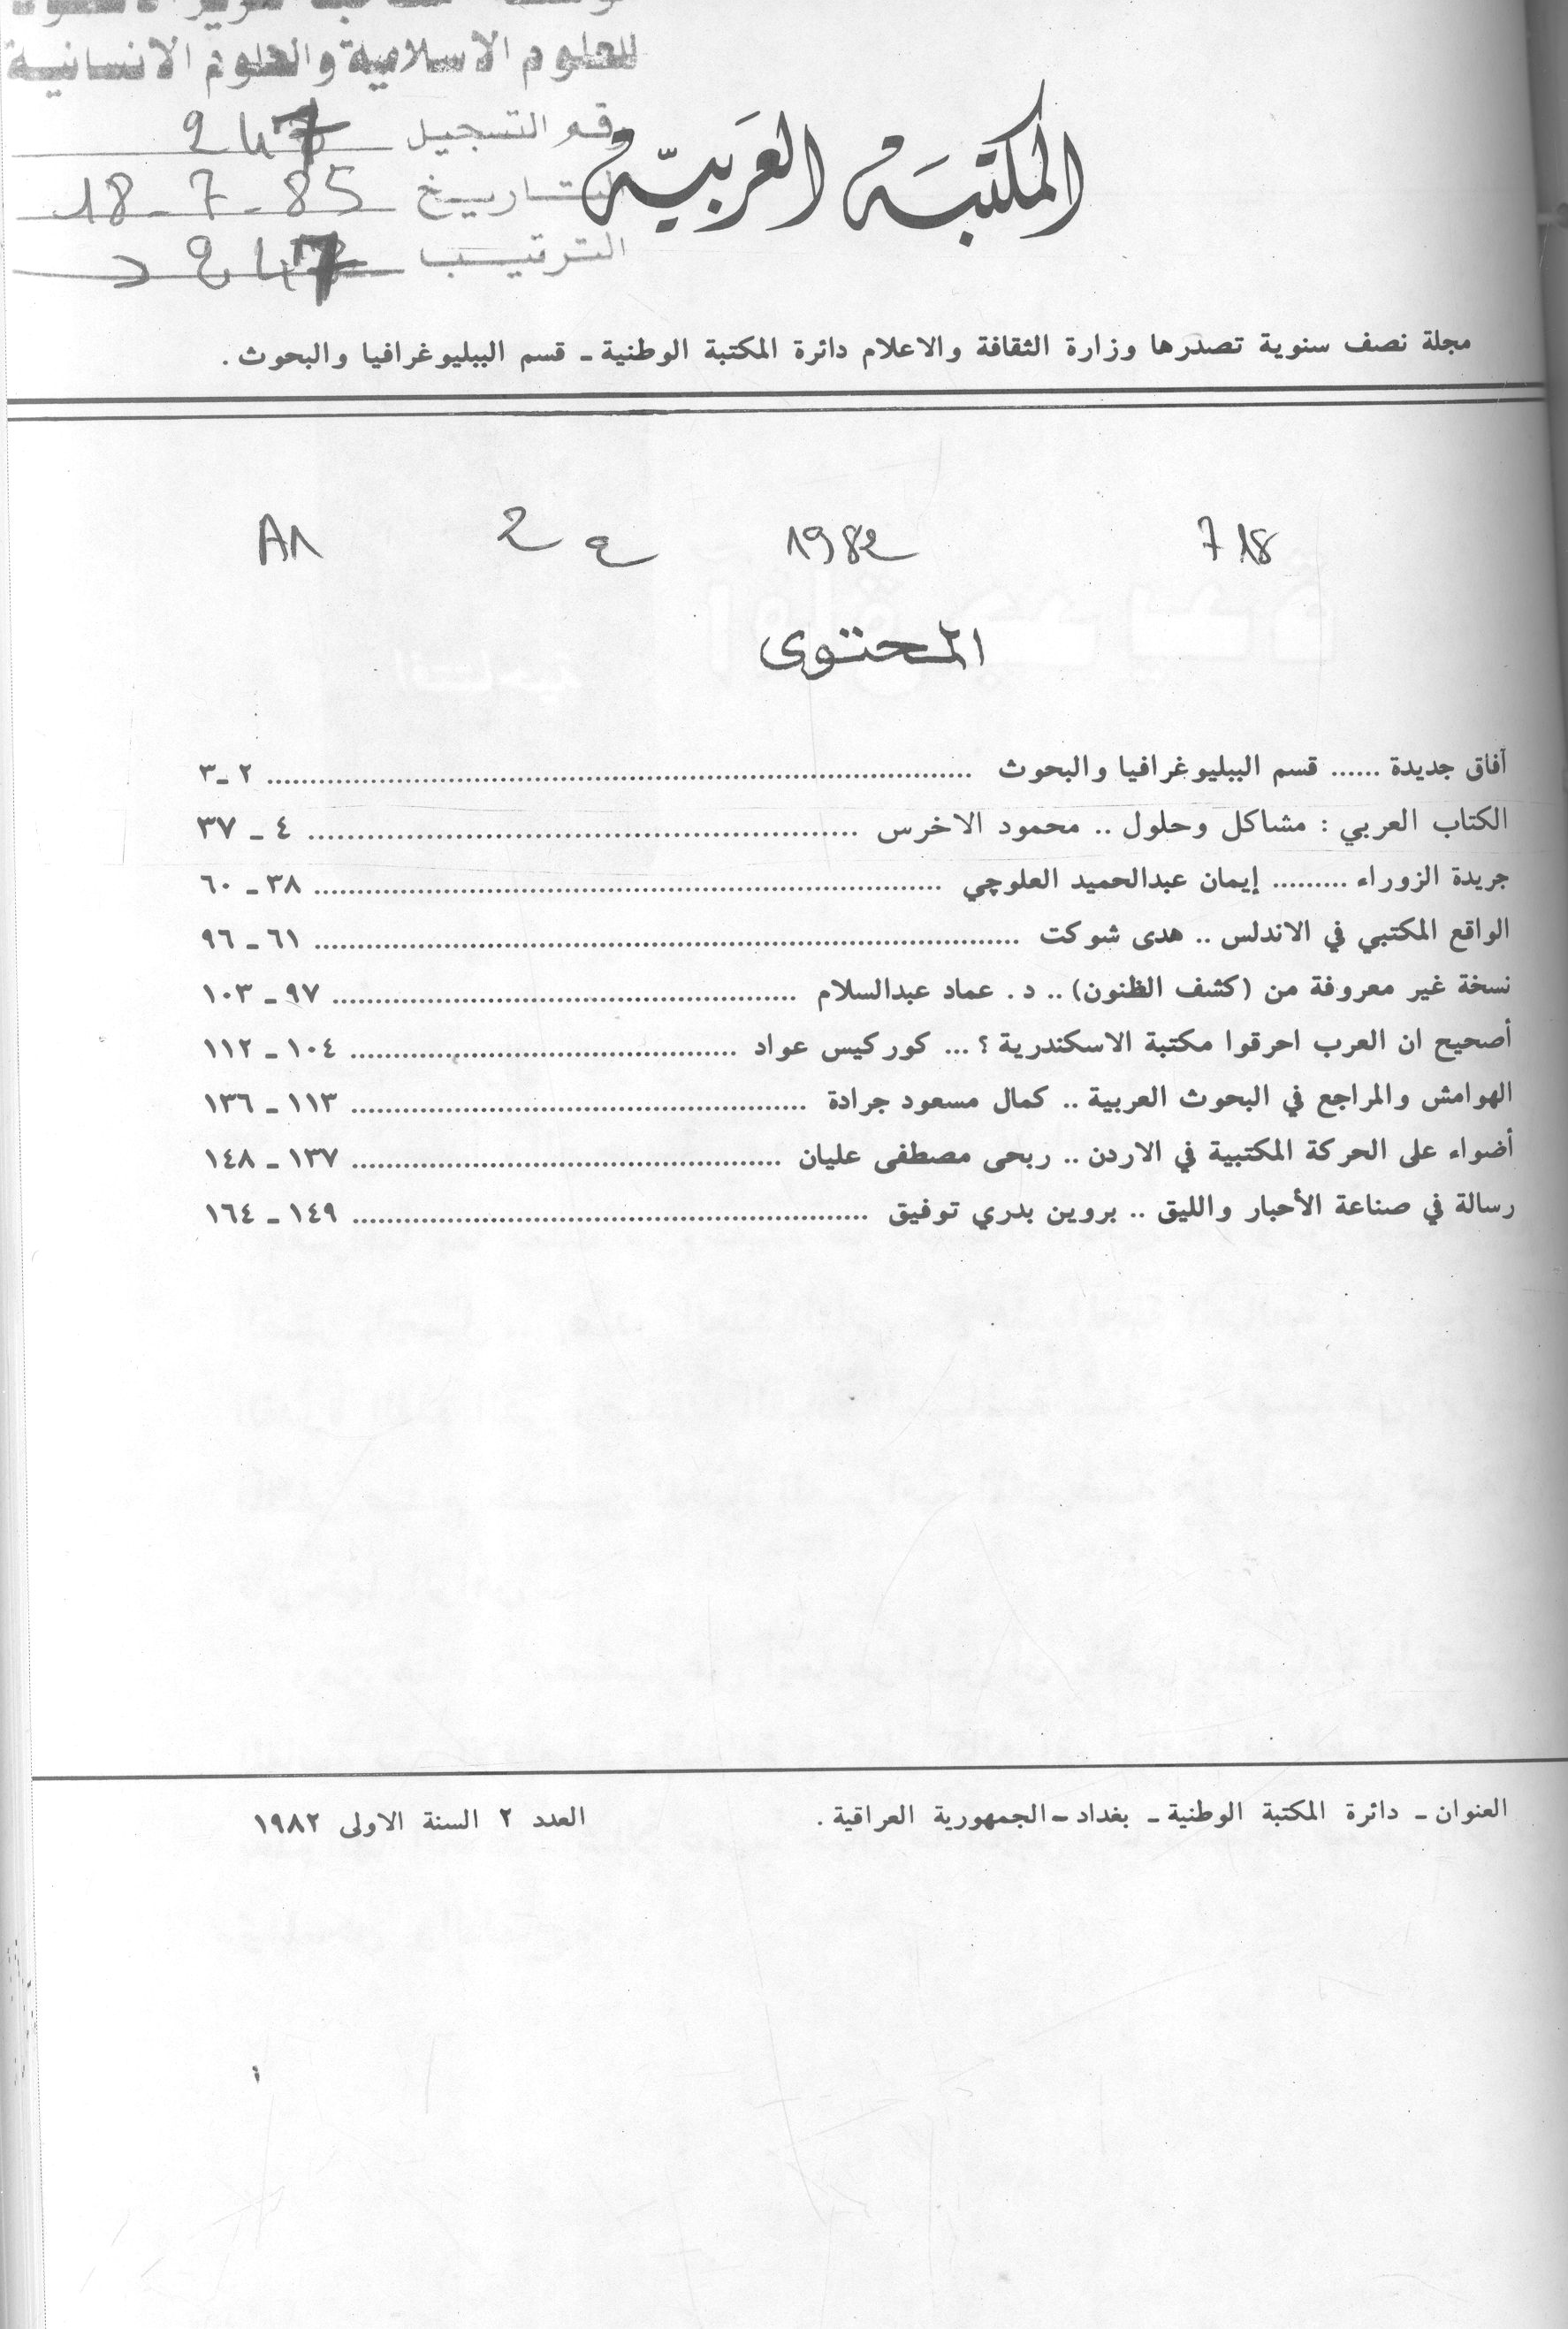 للعلوم الاسلامية والعلوم الانسانية
التسجيل 247
التاريخ 18-7-85
الترتيب 247 د
المكتبة العَربيّة
مجلة نصف سنوية تصدرها وزارة الثقافة والاعلام دائرة المكتبة الوطنية ـ قسم الببليوغرافيا والبحوث .
718 1982 ع 2 A1
المحتوى
آفاق جديدة ...... قسم الببليوغرافيا والبحوث ........ ٢ ـ٣
الكتاب العربي : مشاكل وحلول .. محمود الاخرس ........ ٤ ـ ٣٧
جريدة الزوراء ......... إيمان عبدالحميد العلوچي ........ ٣٨ ـ ٦٠
الواقع المكتبي في الاندلس .. هدى شوكت ........ ٦١ ـ ٩٦
نسخة غير معروفة من (كشف الظنون) .. د . عماد عبدالسلام ........ ٩٧ ـ ١٠٣
أصحيح ان العرب احرقوا مكتبة الاسكندرية ؟ ... كوركيس عواد ........ ١٠٤ ـ ١١٢
الهوامش والمراجع في البحوث العربية .. كمال مسعود جرادة ........ ١١٣ ـ ١٣٦
أضواء على الحركة المكتبية في الاردن .. ربحى مصطفى عليان ........ ١٣٧ ـ ١٤٨
رسالة في صناعة الأحبار والليق .. بروين بدري توفيق ........ ١٤٩ ـ ١٦٤
العنوان ـ دائرة المكتبة الوطنية ـ بغداد ـ الجمهورية العراقية .
العدد ٢ السنة الاولى ١٩٨٢